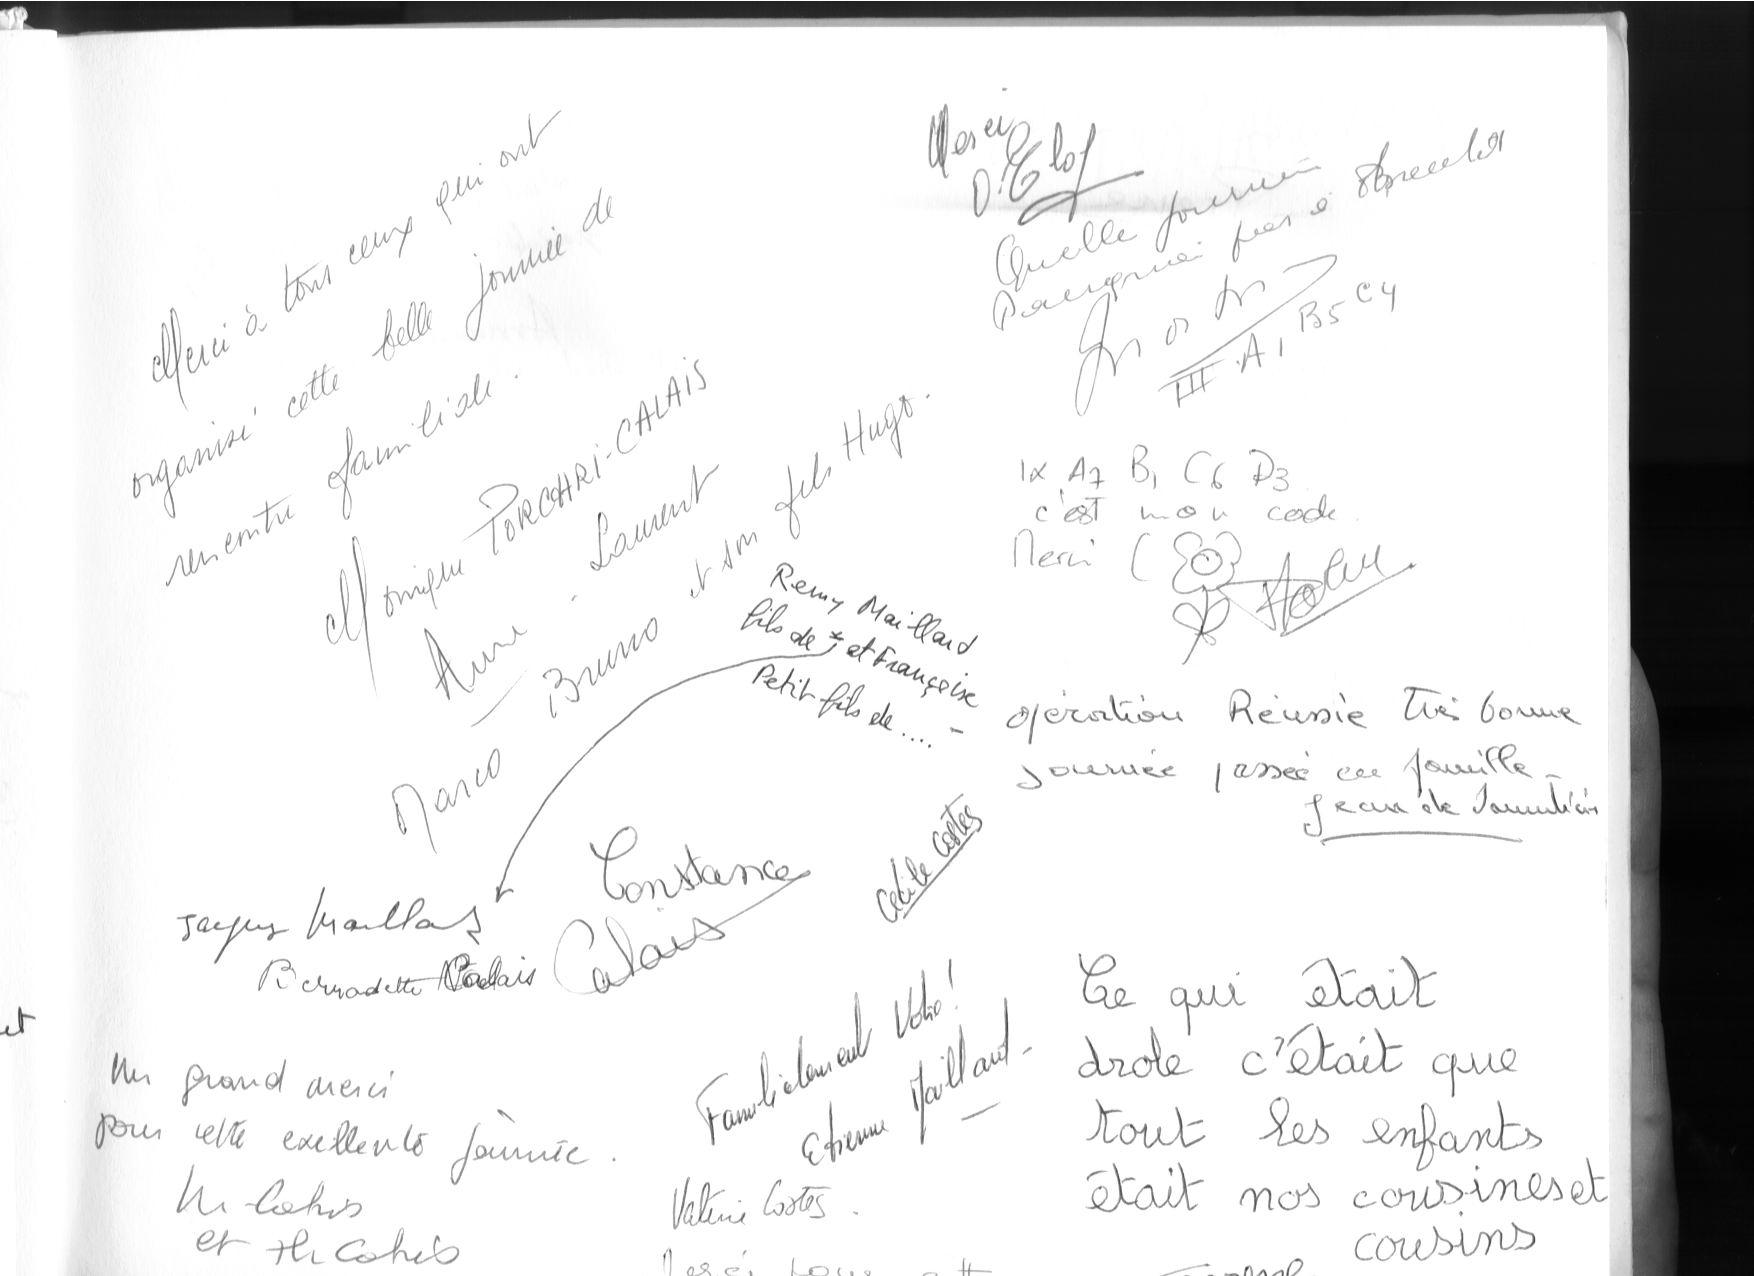 Merci à tous ceux qui ont
organisé cette belle journée de
rencontre familiale.
Monique PORCHRI-CALAIS
Anne - Laurent
Bruno et son fils Hugo.
Marco
Remy Maillard
fils de * et Françoise
Petit fils de .... -
Jacques Maillard
Bernadette Calais
Constance
Calais
Cécile Costes
Un grand merci
pour cette exellente journée.
et
Familialement Votre!
Etienne Maillard -
Valérie Costes.
Merci pour cette
Merci
Quelle journée
III A1 B5 C4
IX A7 B1 C6 D3
c'est mon code.
Merci (
opération Réussie très bonne
journée passée en famille -
Jean de
Ce qui était
drole c'était que
tout les enfants
était nos cousines et
cousins
et